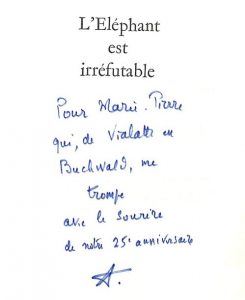 L'Eléphant
est
irréfutable
Pour Marie-Pierre
qui, de Vialatte en
Buchwald, me
trompe
avec le sourire
de notre 25e anniversaire
A.